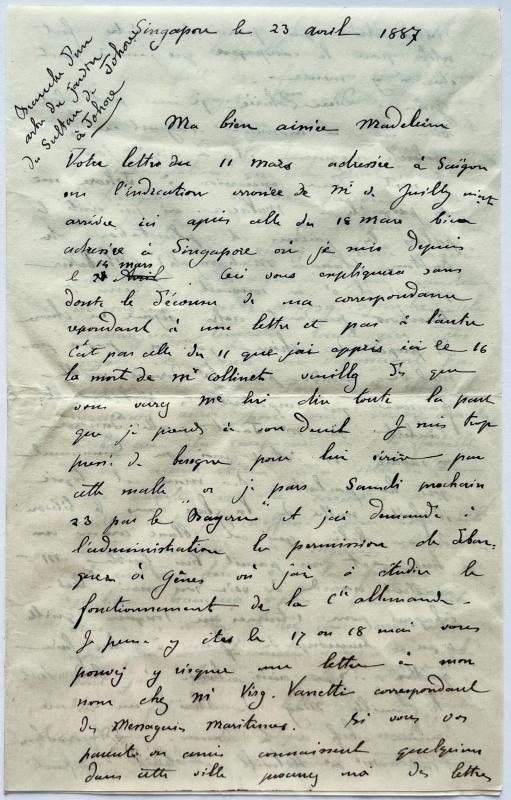 Singapore le 23 avril 1887
Branche d'un
arbre du jardin
du Sultan de Johore
à Johore
Ma bien aimée Madeleine
Votre lettre du 11 mars adressée à Saïgon
sur l'indication erronée de Mr de Juilly m'est
arrivée ici après celle du 18 mars bien
adressée à Singapore où je suis depuis
le 14 mars Avril. Ceci vous expliquera sans
doute le décousu de ma correspondance
repondant à une lettre et pas à l'autre
C'est par celle du 11 que j'ai appris ici le 16
la mort de Mr Collinet veuillez dès que
vous verrez Me lui dire toute la part
que je prends à son deuil. Je suis trop
pressé de besogne pour lui écrire par
cette malle or je pars Samedi prochain
23 par le "Bayern" et j'ai demandé à
l'administration la permission de débar-
quer à Gênes où j'ai à étudier le
fonctionnement de la Cie allemande.
Je pense y être le 17 ou 18 mai vous
pouvez y risquer une lettre à mon
nom chez Mr Virg. Vanetti correspondant
des Messageries maritimes. Si vous vos
parents ou amis connaissent quelqu'un
dans cette ville procurez moi des lettres